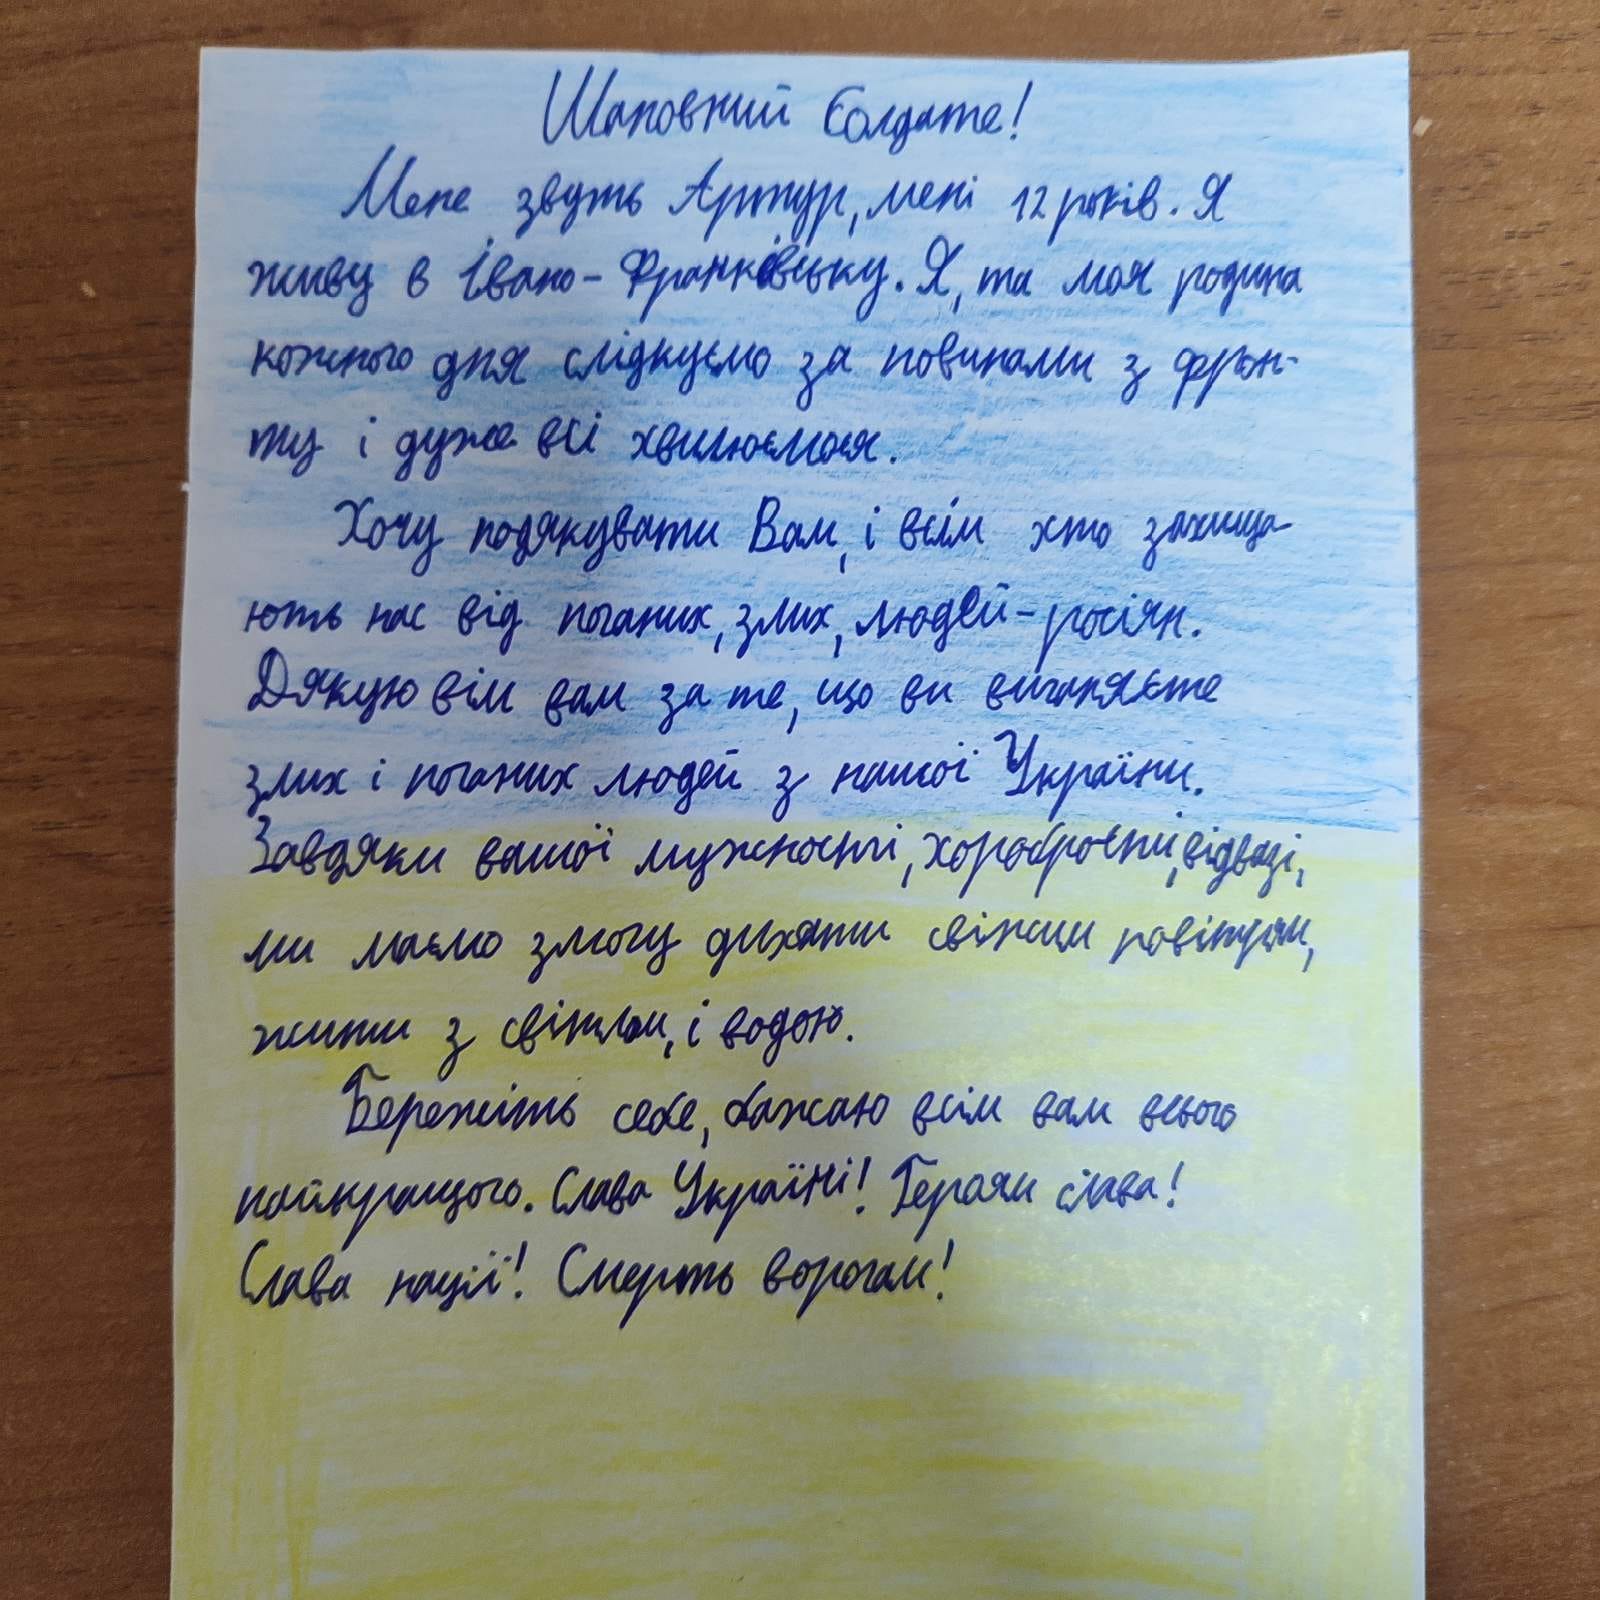 Шановний Солдате!
Мене звуть Артур, мені 12 років. Я
живу в Івано-Франківську. Я, та моя родина
кожного дня слідкуємо за новинами з фрон-
ту і дуже всі хвилюємося.
Хочу подякувати Вам, і всім хто захища-
ють нас від поганих, злих, людей-росіян.
Дякую всім вам за те, що ви виганяєте
злих і поганих людей з нашої України.
Завдяки вашої мужності, хоробрості, відвазі,
ми маємо змогу дихати свіжим повітрям,
жити з світлом, і водою.
Бережіть себе, бажаю всім вам всього
найкращого. Слава Україні! Героям слава!
Слава нації! Смерть ворогам!